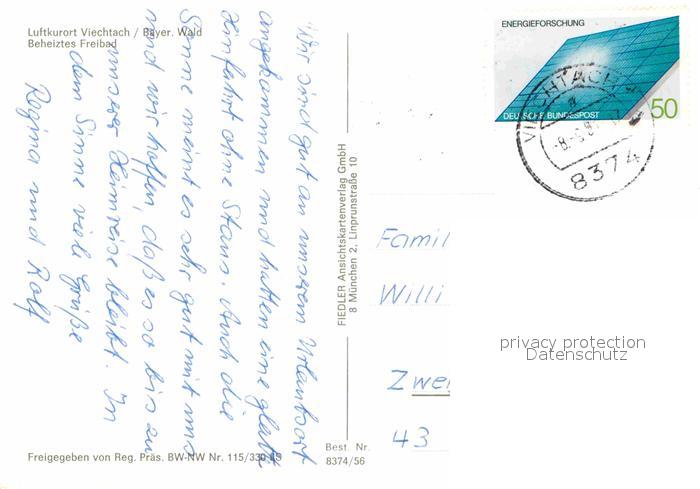 Luftkurort Viechtach / Bayer. Wald
Beheiztes Freibad
Wir sind gut an unserem Urlaubsort
angekommen und hatten eine glatte
Hinfahrt ohne Staus. Auch die
Sonne meint es sehr gut mit uns
und wir hoffen, daß es so bis zu
unserer Heimreise bleibt. In
dem Sinne viele Grüße
Regina und Rolf
Freigegeben von Reg. Präs. BW-NW Nr. 115/330
Best. Nr.
8374/56
FIEDLER Ansichtskartenverlag GmbH
8 München 2, Linprunstraße 10
ENERGIEFORSCHUNG
DEUTSCHE BUNDESPOST
50
VIECHTACH
8374
Famil
Willi
Zwei
43
privacy protection
Datenschutz